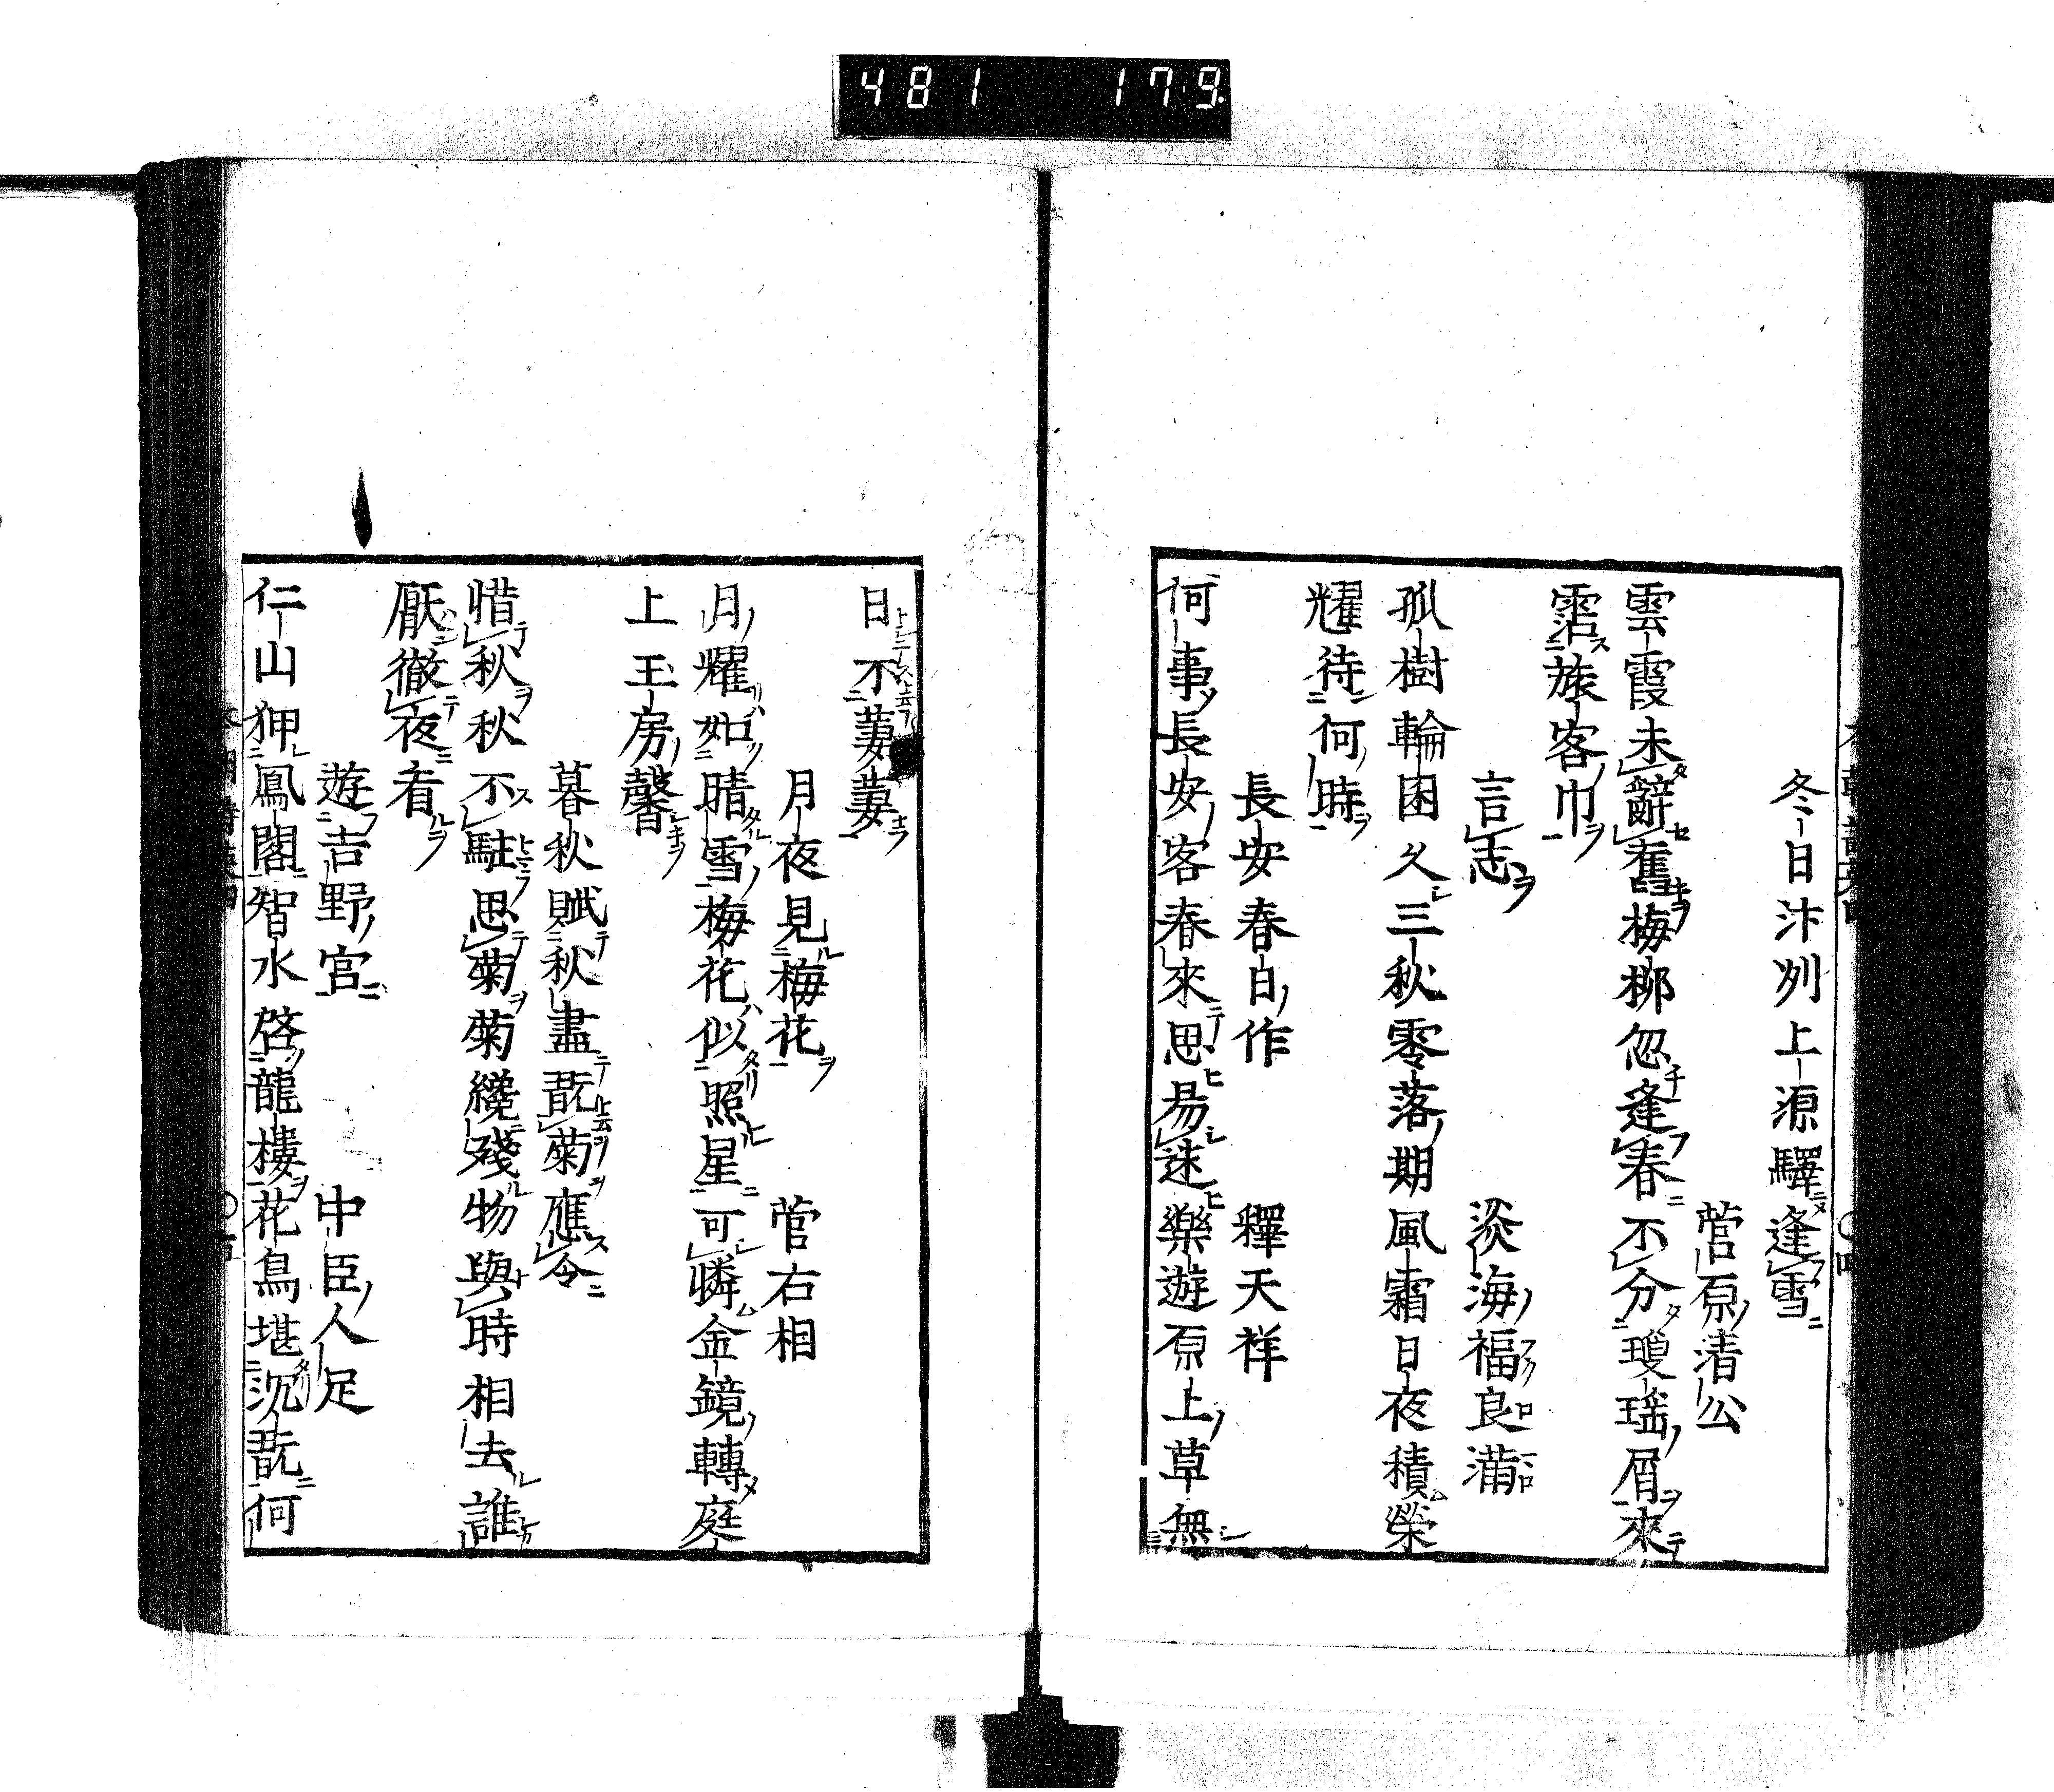 481 179
冬日汴州上源驛逢雪
菅原清公
雲霞未辭舊梅柳忽逢春不分瓊瑤屑來
霑旅客巾
言志
淡海福良滿
孤樹輪囷久三秋零落期風霜日夜積榮
耀待何時
長安春日作
釋天祥
何事長安客春來思易迷樂遊原上草無
日不萋萋
月夜見梅花
菅右相
月耀如晴雪梅花似照星可憐金鏡轉庭
上玉房馨
暮秋賦秋盡翫菊應令
惜秋秋不駐思菊菊纔殘物與時相去誰
厭徹夜看
遊吉野宮
中臣人足
仁山狎鳳閣智水啓龍樓花鳥堪沉翫何